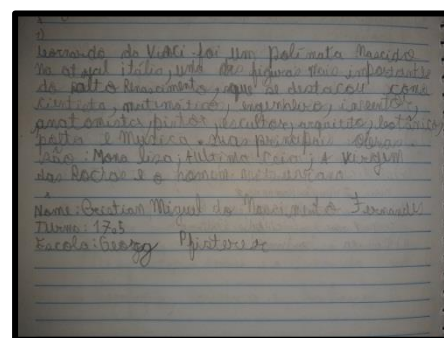 1)
Leonardo da Vinci foi um polímata nascido
na atual itália, uma das figuras mais importantes
do alto Renascimento, que se destacou como
cientista, matemático, engenheiro, inventor,
anatomista, pintor, escultor, arquiteto, botânico,
poeta e Musico. suas principais obras
são: Mona lisa; A ultima Ceia; A Virgem
das Rochas e o homem vitruviano
Nome: Cristian Miguel do Nascimento Fernandes
Turma: 17.5
Escola: Georg Pfisterer